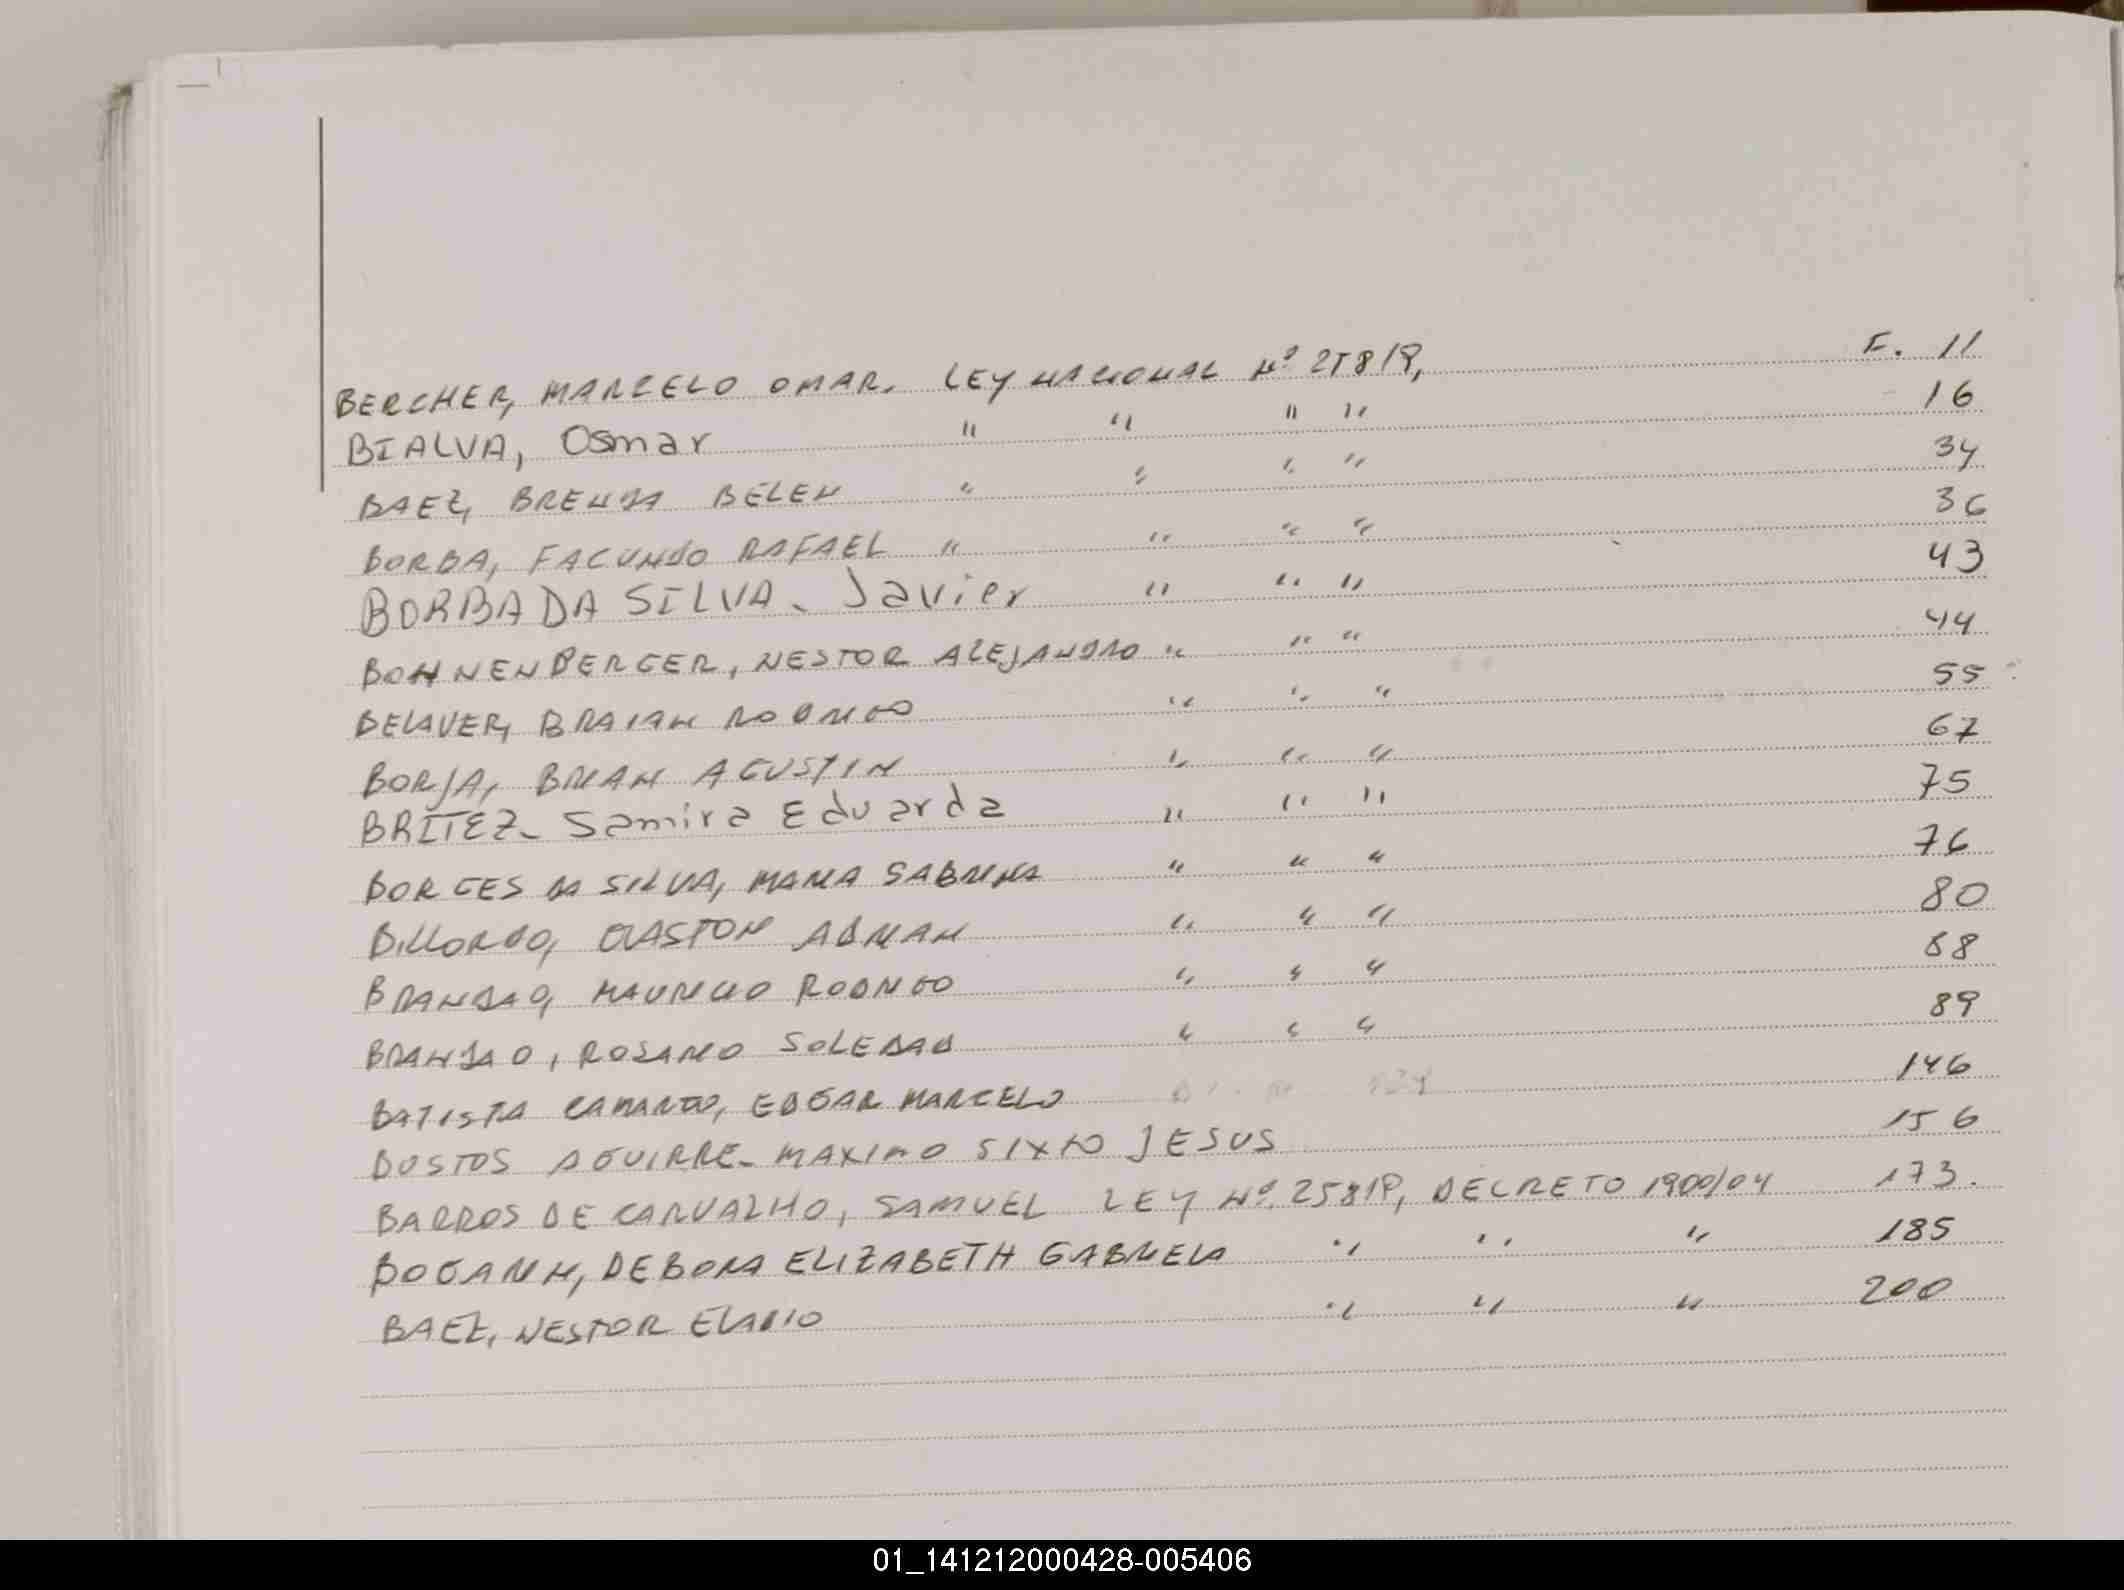 BERCHER, MARCELO OMAR. LEY NACIONAL Nº 25819, F. 11
BIALVA, Osmar " " " " 16
BAEZ, BRENDA BELEN " " " " 34
BORBA, FACUNDO RAFAEL " " " " 36
BORBA DA SILVA. Javier " " " 43
BOHNENBERGER, NESTOR ALEJANDRO " " " 44
BELAVER, BRAIAN RODRIGO " " " 55
BORJA, BRIAN AGUSTIN " " " 67
BRITEZ- Samira Eduarda " " " 75
BORGES DA SILVA, MARIA SABRINA " " " 76
BILLORDO, GASTON ADRIAN " " " 80
BRANDAO, MAURICIO RODRIGO " " " 88
BRANDAO, ROSARIO SOLEDAD " " " 89
BATISTA CAMARGO, EDGAR MARCELO 146
BUSTOS AGUIRRE- MAXIMO SIXTO JESUS 156
BARROS DE CARVALHO, SAMUEL LEY Nº. 25819, DECRETO 1900/04 173.
BOGARIN, DEBORA ELIZABETH GABRIELA " " " 185
BAEZ, NESTOR ELADIO " " " 200
01_141212000428-005406